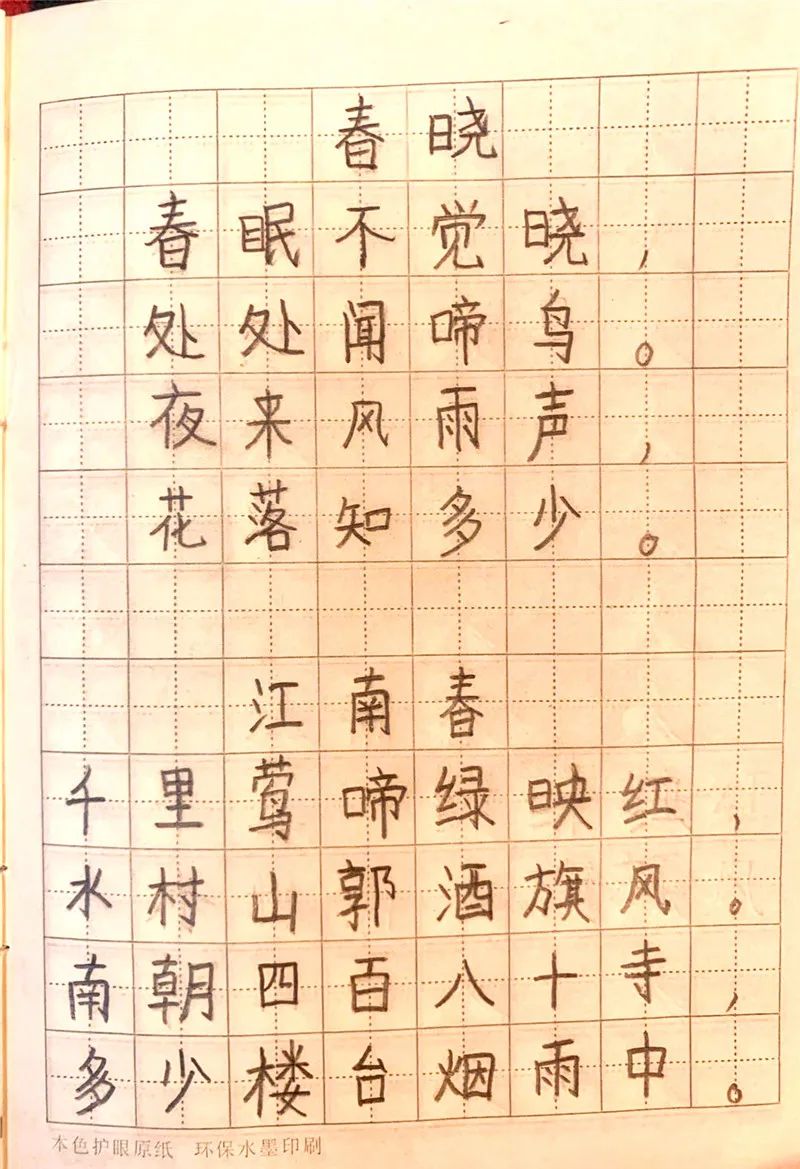 春晓
春眠不觉晓，
处处闻啼鸟。
夜来风雨声，
花落知多少。
江南春
千里莺啼绿映红，
水村山郭酒旗风。
南朝四百八十寺，
多少楼台烟雨中。
本色护眼原纸 环保水墨印刷